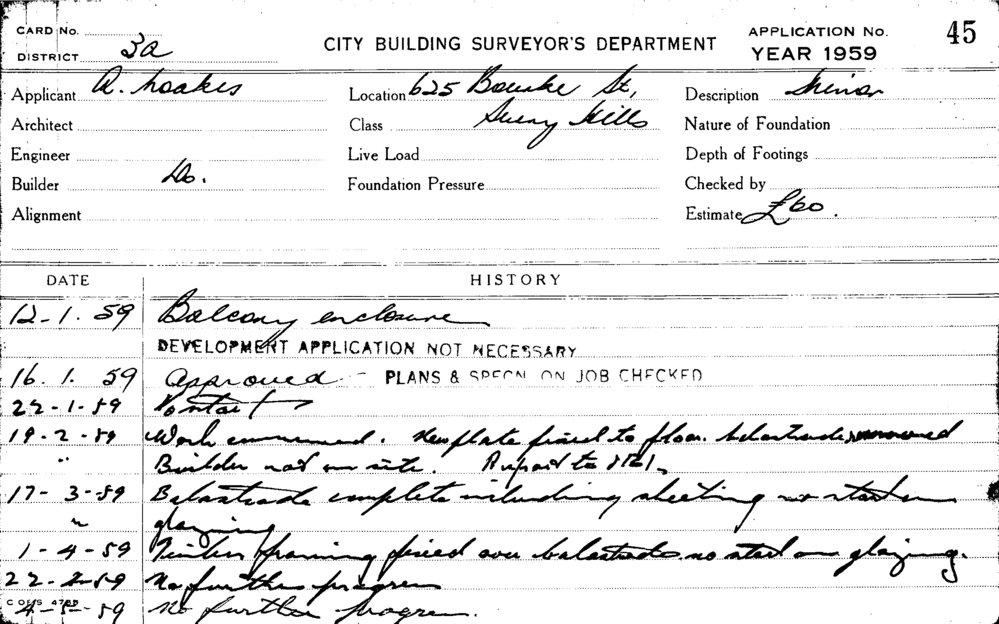 CARD No.
DISTRICT 3a
CITY BUILDING SURVEYOR'S DEPARTMENT
APPLICATION No. 45
YEAR 1959
Applicant A. Noakes
Location 625 Bourke St,
Description Minor
Architect
Class Surry Hills
Nature of Foundation
Engineer
Live Load
Depth of Footings
Builder Do.
Foundation Pressure
Checked by
Alignment
Estimate £60.
DATE HISTORY
12-1.59 Balcony enclosure
DEVELOPMENT APPLICATION NOT NECESSARY
16.1.59 Approved - PLANS & SPECN. ON JOB CHECKED
22-1-59 Contact
19-2-59 Work commenced. New plate fixed to floor. balastrade removed
" Builder not on site. Report to
17-3-59 Balastrade complete including sheeting no start on
" glazing
1-4-59 Timber framing fixed over balastrade. no start on glazing.
22--59 No further progress
CONS 4780
4-5-59 No further progress.